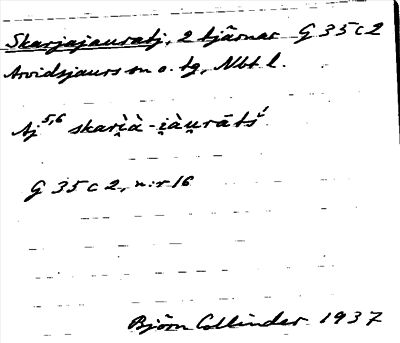 Skarjajauratj, 2 tjärnar G 35 c 2
Arvidsjaurs sn o. tg, Nbt l.
tj 5,6 skari̯à-i̯àu̯rāts´
G 35 c 2, n:r 16
Björn Collinder 1937